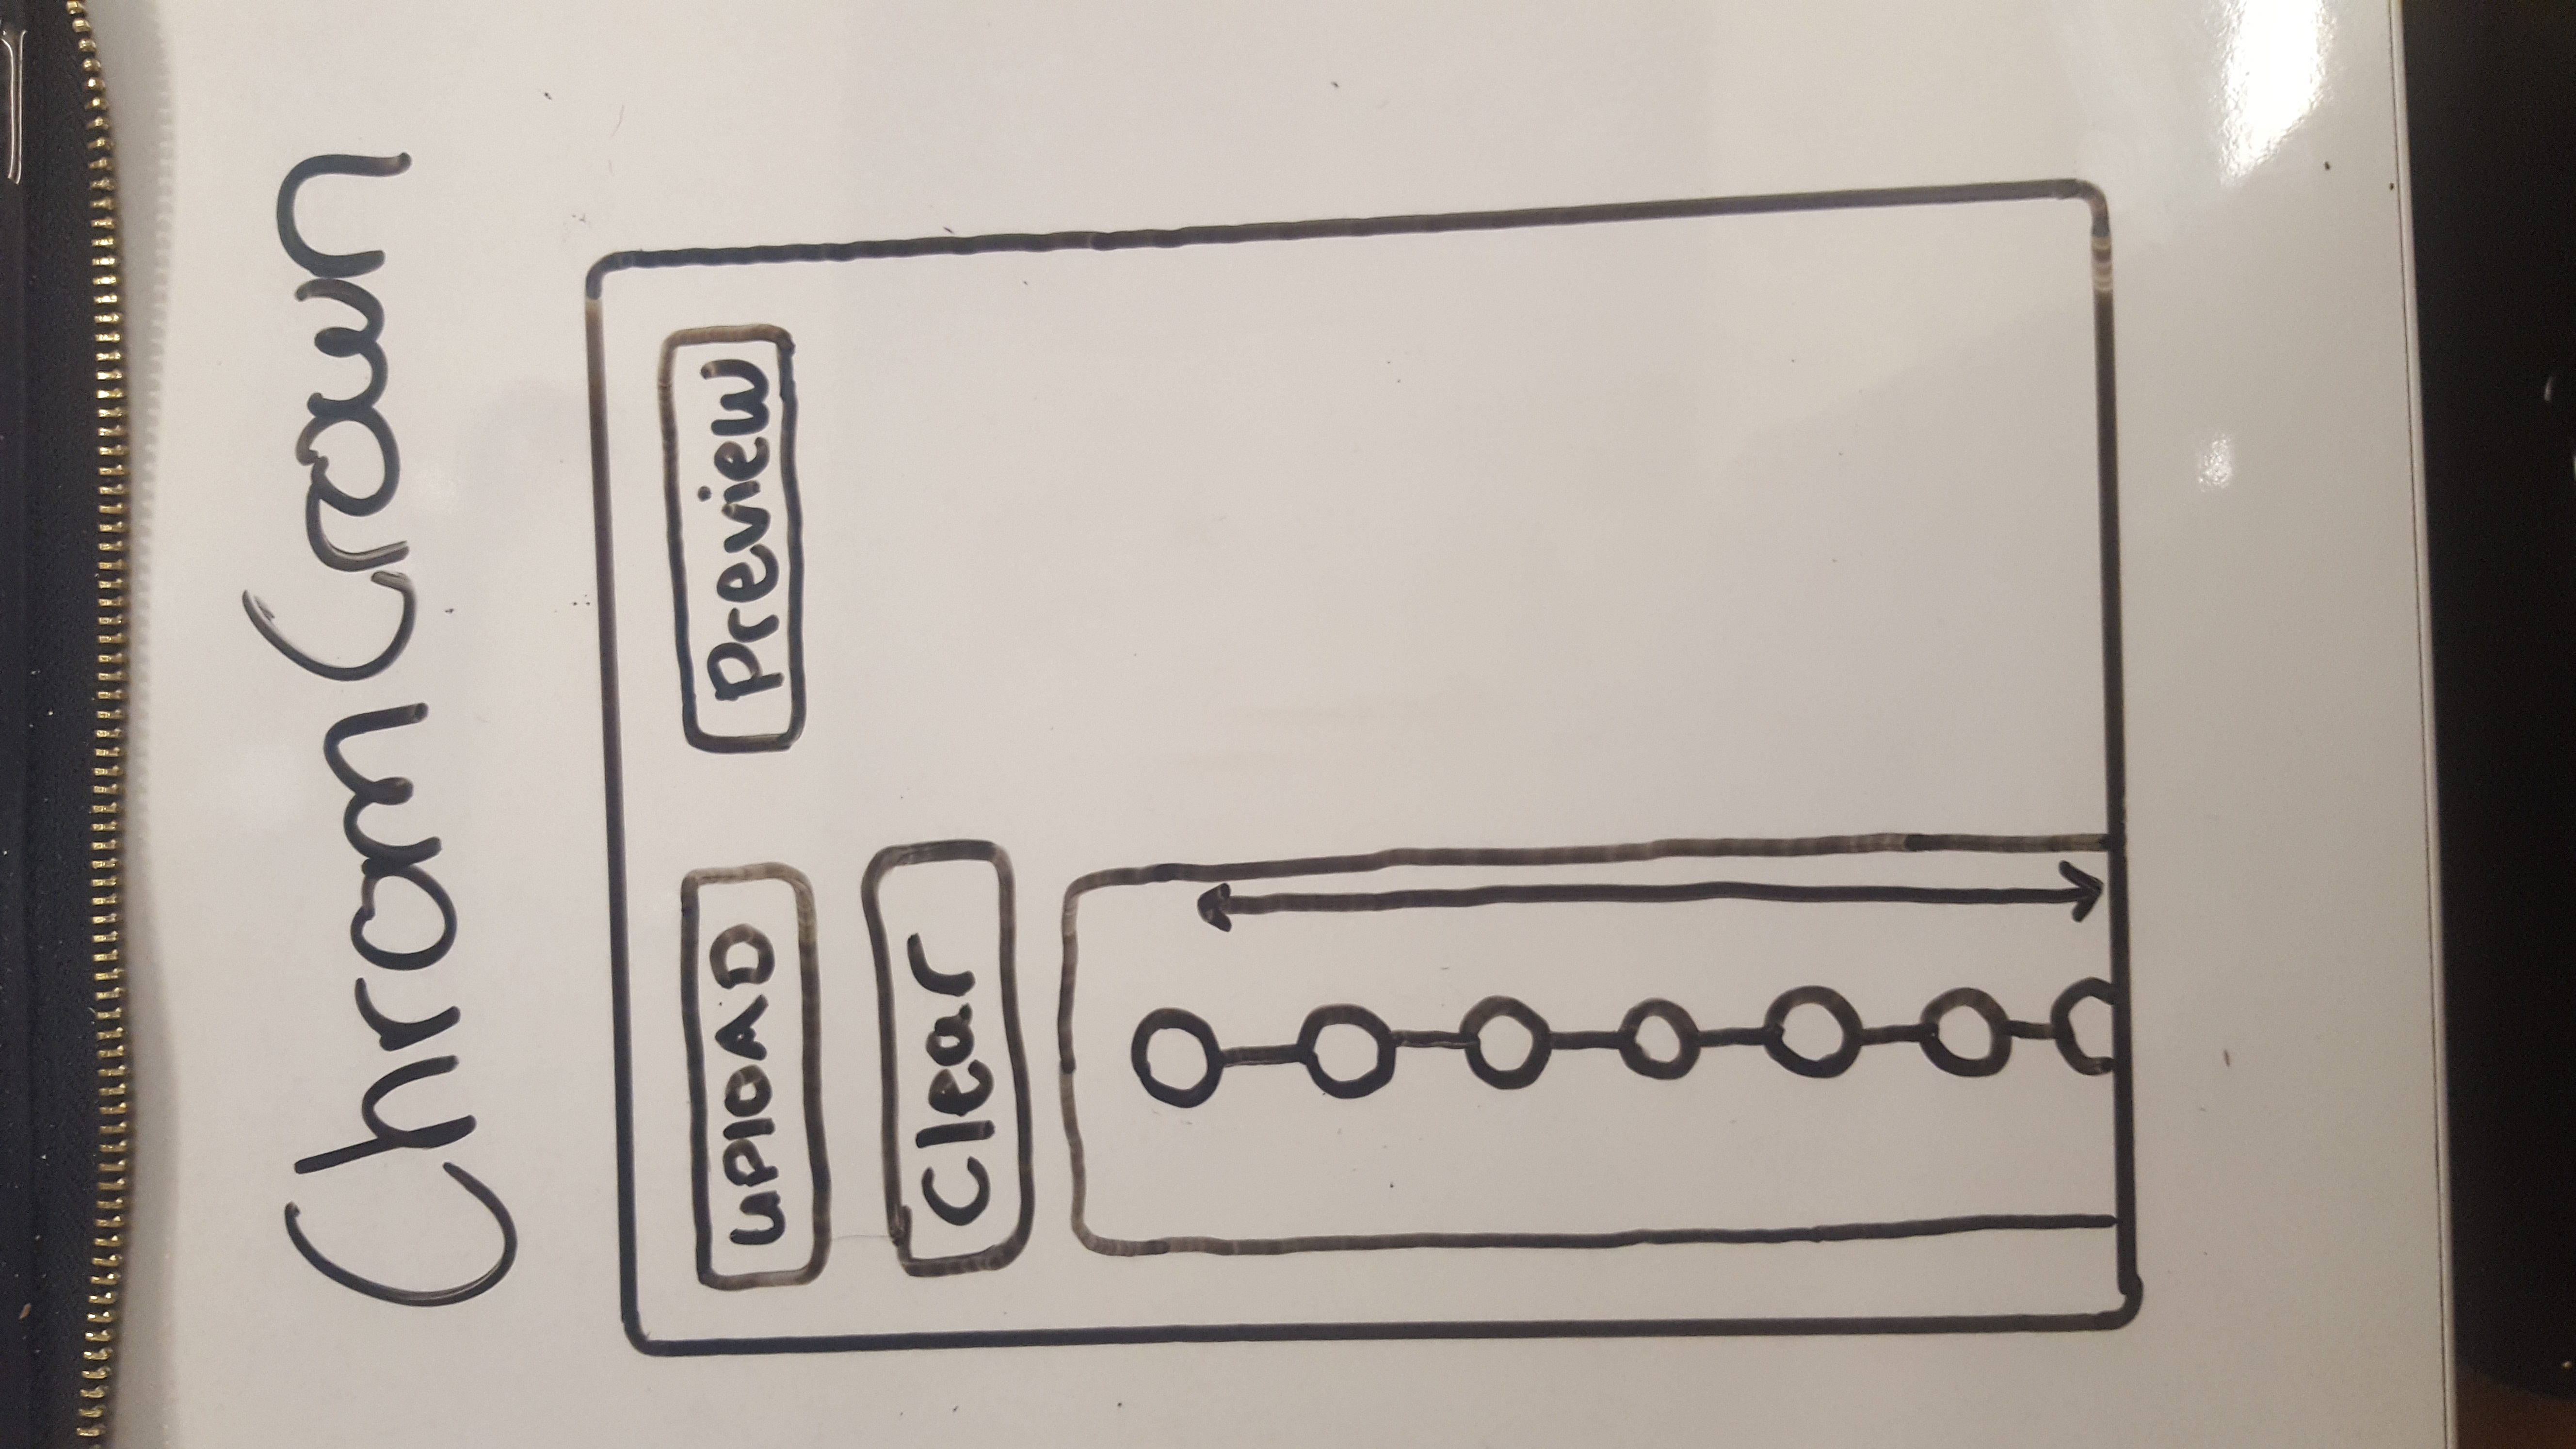 ChromCrown
UPlOAD
Preview
Clear